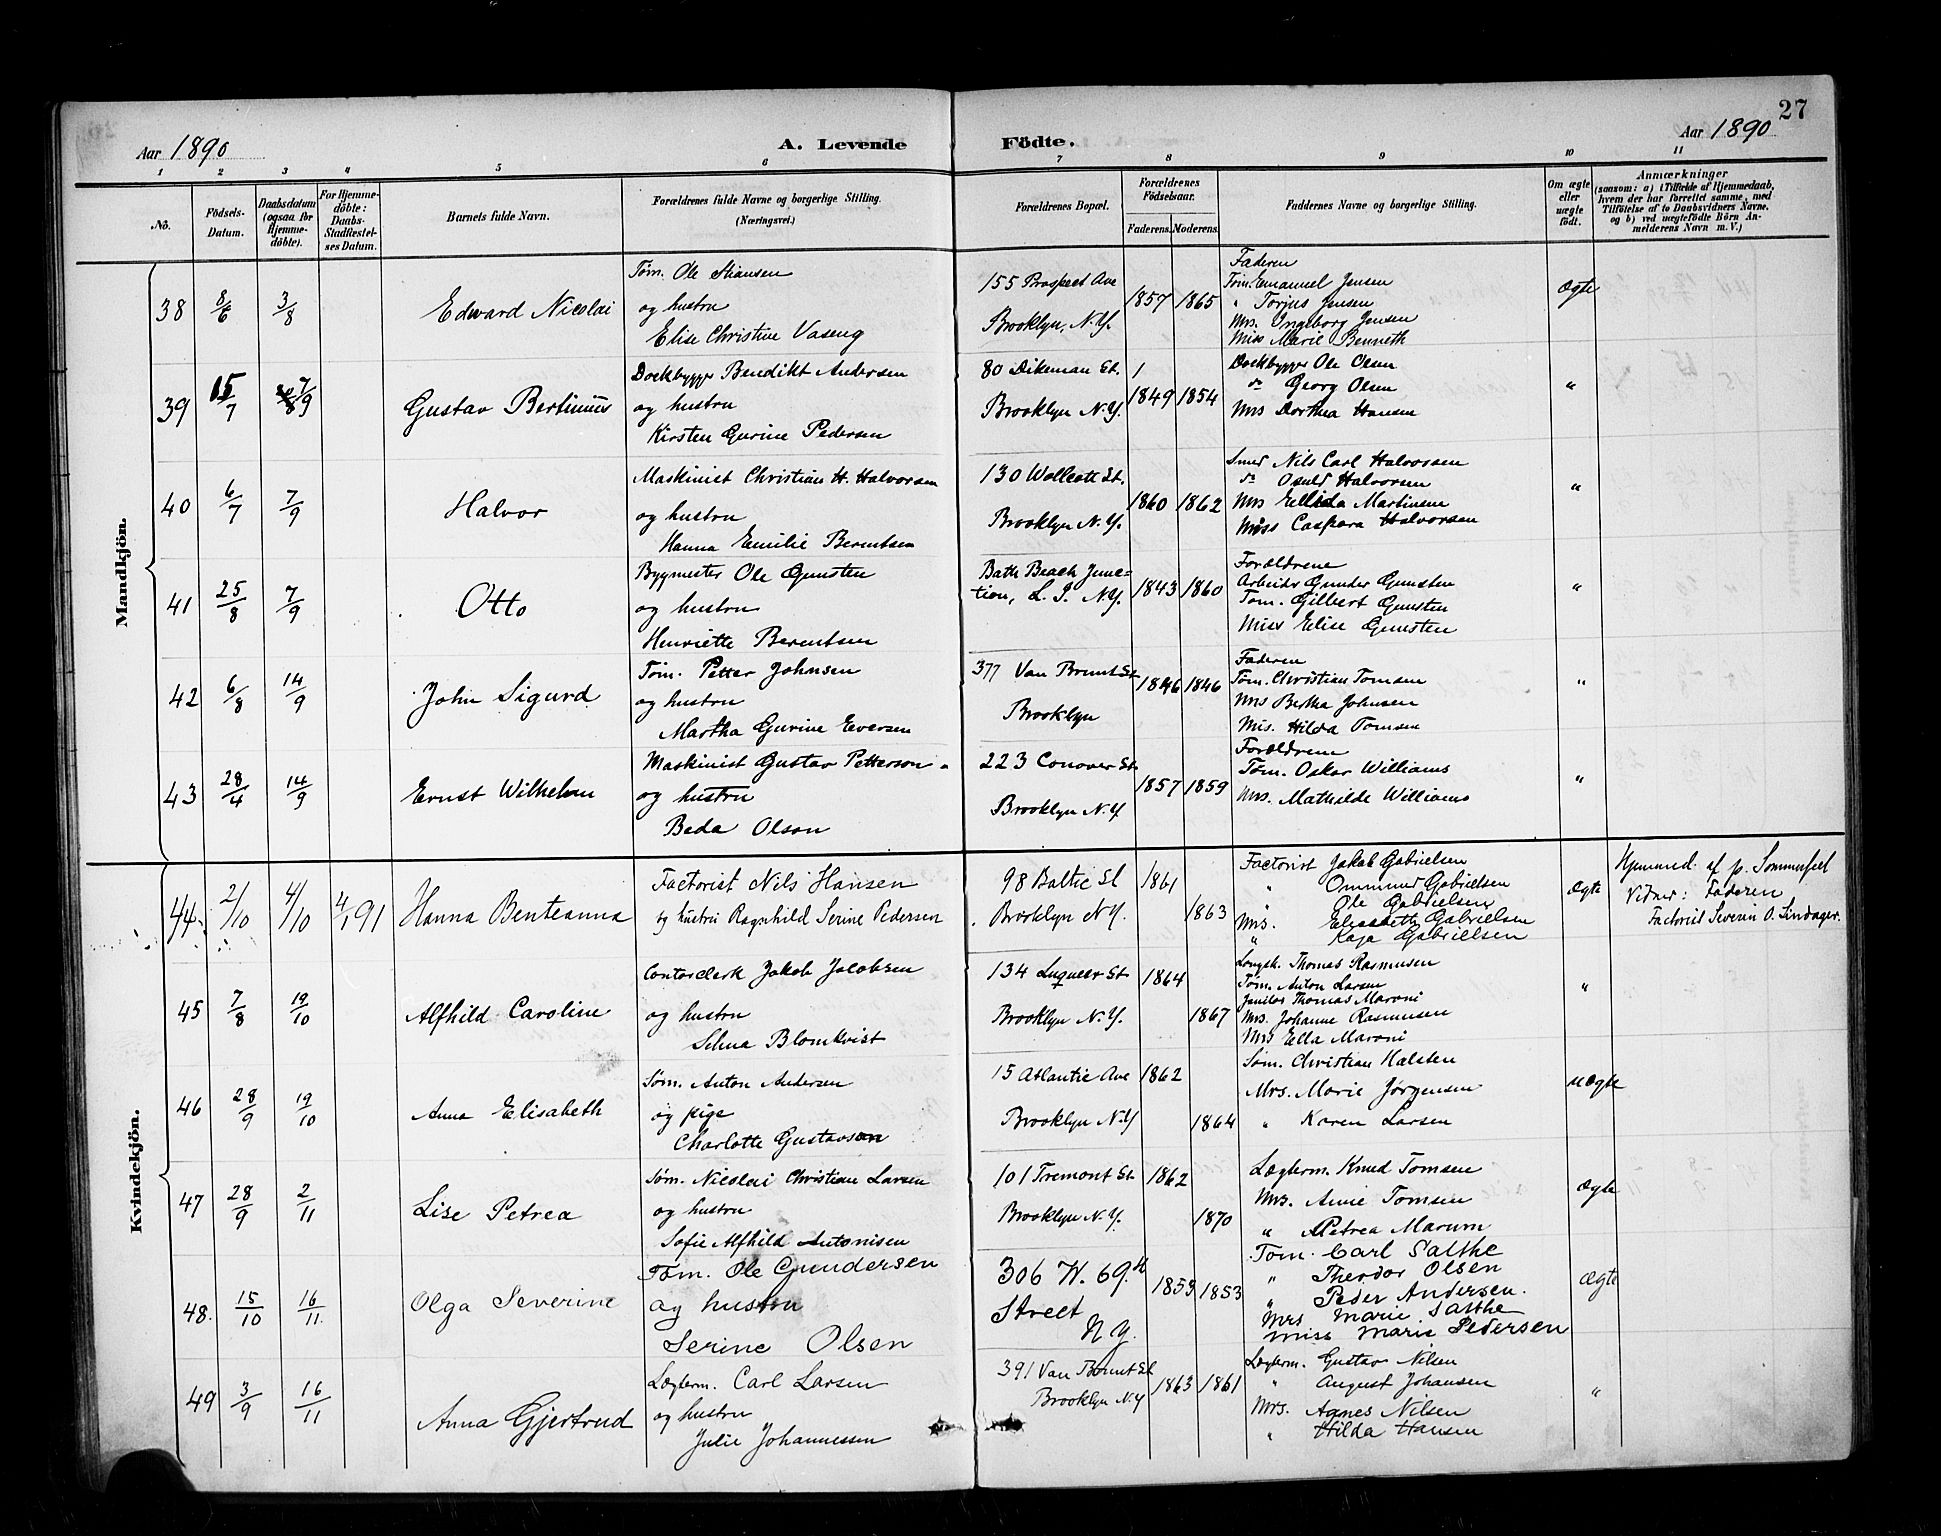 27
Aar 1890
A. Levende Födte.
Aar 1890
1 2 3 4 5 6 7 8 9 10 11
No.
Födsels-Datum.
Daabsdatum (ogsaa for Hjemmedöbte).
For Hjemmedöbte: Daabs-Stadfæstelses Datum.
Barnets fulde Navn.
Forældrenes fulde Navne og borgerlige Stilling.
(Næringsvei.)
Forældrenes Bopæl.
Forældrenes Födselsaar.
Faderens. Moderens.
Faddernes Navne og borgerlige Stilling.
Om ægte eller uægte födt.
Anmærkninger
(saasom: a) i Tilfælde af Hjemmedaab, hvem der har forrettet samme, med Tilföielse af to Daabsvidners Navne. og b) ved uægtefödte Börn Anmelderens Navn m. V.)
Mandkjön.
38 8/6 3/8 Edward Nicolai
Tøm. Ole Hansen
og hustru
Elise Christine Vaseng
155 Prospect Ave
Brooklyn, N.Y.
1857 1865
Faderen
Tøm. Emanuel Jensen
" Torjus Jensen
Mrs. Ingeborg Jensen
Miss Marie Benneth
Ægte
39 15/7 7/9 Gustav Bertinius
Dockbygger Bendikt Andersen
og hustru
Kirsten Gurine Pedersen
80 Dikeman St.
Brooklyn N.Y.
1849 1854
Dockbygger Ole Olsen
do Georg Olsen
Mrs Dorthea Hansen
"
40 6/7 7/9 Halvor
Maskinist Christian H. Halvorsen
og hustru
Hanna Emilie Berentsen
130 Wollcott St.
Brooklyn N.Y.
1860 1862
Smed Nils Carl Halvorsen
do Osuld Halvorsen
Mrs Ellida Martinsen
Miss Caspara Halvorsen
"
41 25/8 7/9 Otto
Bygmester Ole Gunsten
og hustru
Henriette Berentsen
Bath Beach Junc=
tion, L. I. N.Y.
1843 1860
Forældrene
Arbeider Gunder Gunsten
Tøm. Gilbert Gunsten
Miss Elise Gunsten
"
42 6/8 14/9 John Sigurd
Tøm. Petter Johnsen
og hustru
Martha Gurine Eversen
377 Van Brunt St
Brooklyn
1846 1846
Faderen
Tøm. Christian Tomsen
Mrs Bertha Johnsen
Mis. Hilda Tomsen
"
43 28/4 14/9 Ernst Wilhelm
Maskinist Gustav Petterson
og hustru
Beda Olson
223 Conover St.
Brooklyn N.Y
1857 1859
Forældrene
Tøm. Oskar Williams
Mrs. Mathilde Williams
"
Kvindekjön.
44 2/10 4/10 4/1 91 Hanna Benteanna
Factorist Nils Hansen
og hustru Ragnhild Serine Pedersen
98 Baltic St
Brooklyn N.Y.
1861 1863
Factorist Jakob Gabrielsen
" Ommund Gabrielsen
Ole Gabrielsen
Mrs. Elisabeth Gabrielsen
" Kaja Gabrielsen
Ægte
Hjemmed. af p. Sommerfel
Vidner: Faderen
Factorist Severin O. Lindager.
45 7/8 19/10 Alfhild Caroline
Contorclerk Jakob Jacobsen
og hustru
Selma Blomkvist
134 Luqueer St
Brooklyn N.Y.
1864 1867
Longsh. Thomas Rasmusen
Tøm. Anton Larsen
Janitor Thomas Maroni
Mrs. Johanne Rasmusen
Mrs Ella Maroni
"
46 28/9 19/10 Anna Elisabeth
Søm. Anton Andersen
og pige
Charlotte Gustavson
15 Atlantic Ave
Brooklyn N.Y
1862 1864
Søm. Christian Halsten
Mrs. Marie Jørgensen
" Karen Larsen
uÆgte
47 28/9 2/11 Lise Petrea
Søm. Nicolai Christian Larsen
og hustru
Sofie Alfhild Antonisen
101 Tremont St.
Brooklyn N.Y.
1862 1870
Lægterm. Knud Tomsen
Mrs. Anne Tomsen
" Petrea Marum
Ægte
48. 15/10 16/11 Olga Severine
Tøm. Ole Gundersen
og hustru
Serine Olsen
306 W. 69.th
Street
N.Y.
1853 1853
Tøm. Carl Salthe
" Theodor Olsen
" Peder Andersen.
Mrs Marie Salthe
Miss Marie Pedersen
Ægte
49 3/9 16/11 Anna Gjertrud
Lægterm. Carl Larsen
og hustru
Julie Johannessen
391 Van Brunt St
Brooklyn N.Y
1863 1861
Lægterm. Gustav Nilsen
" August Johansen
Mrs. Agnes Nilsen
" Hilda Hansen
"